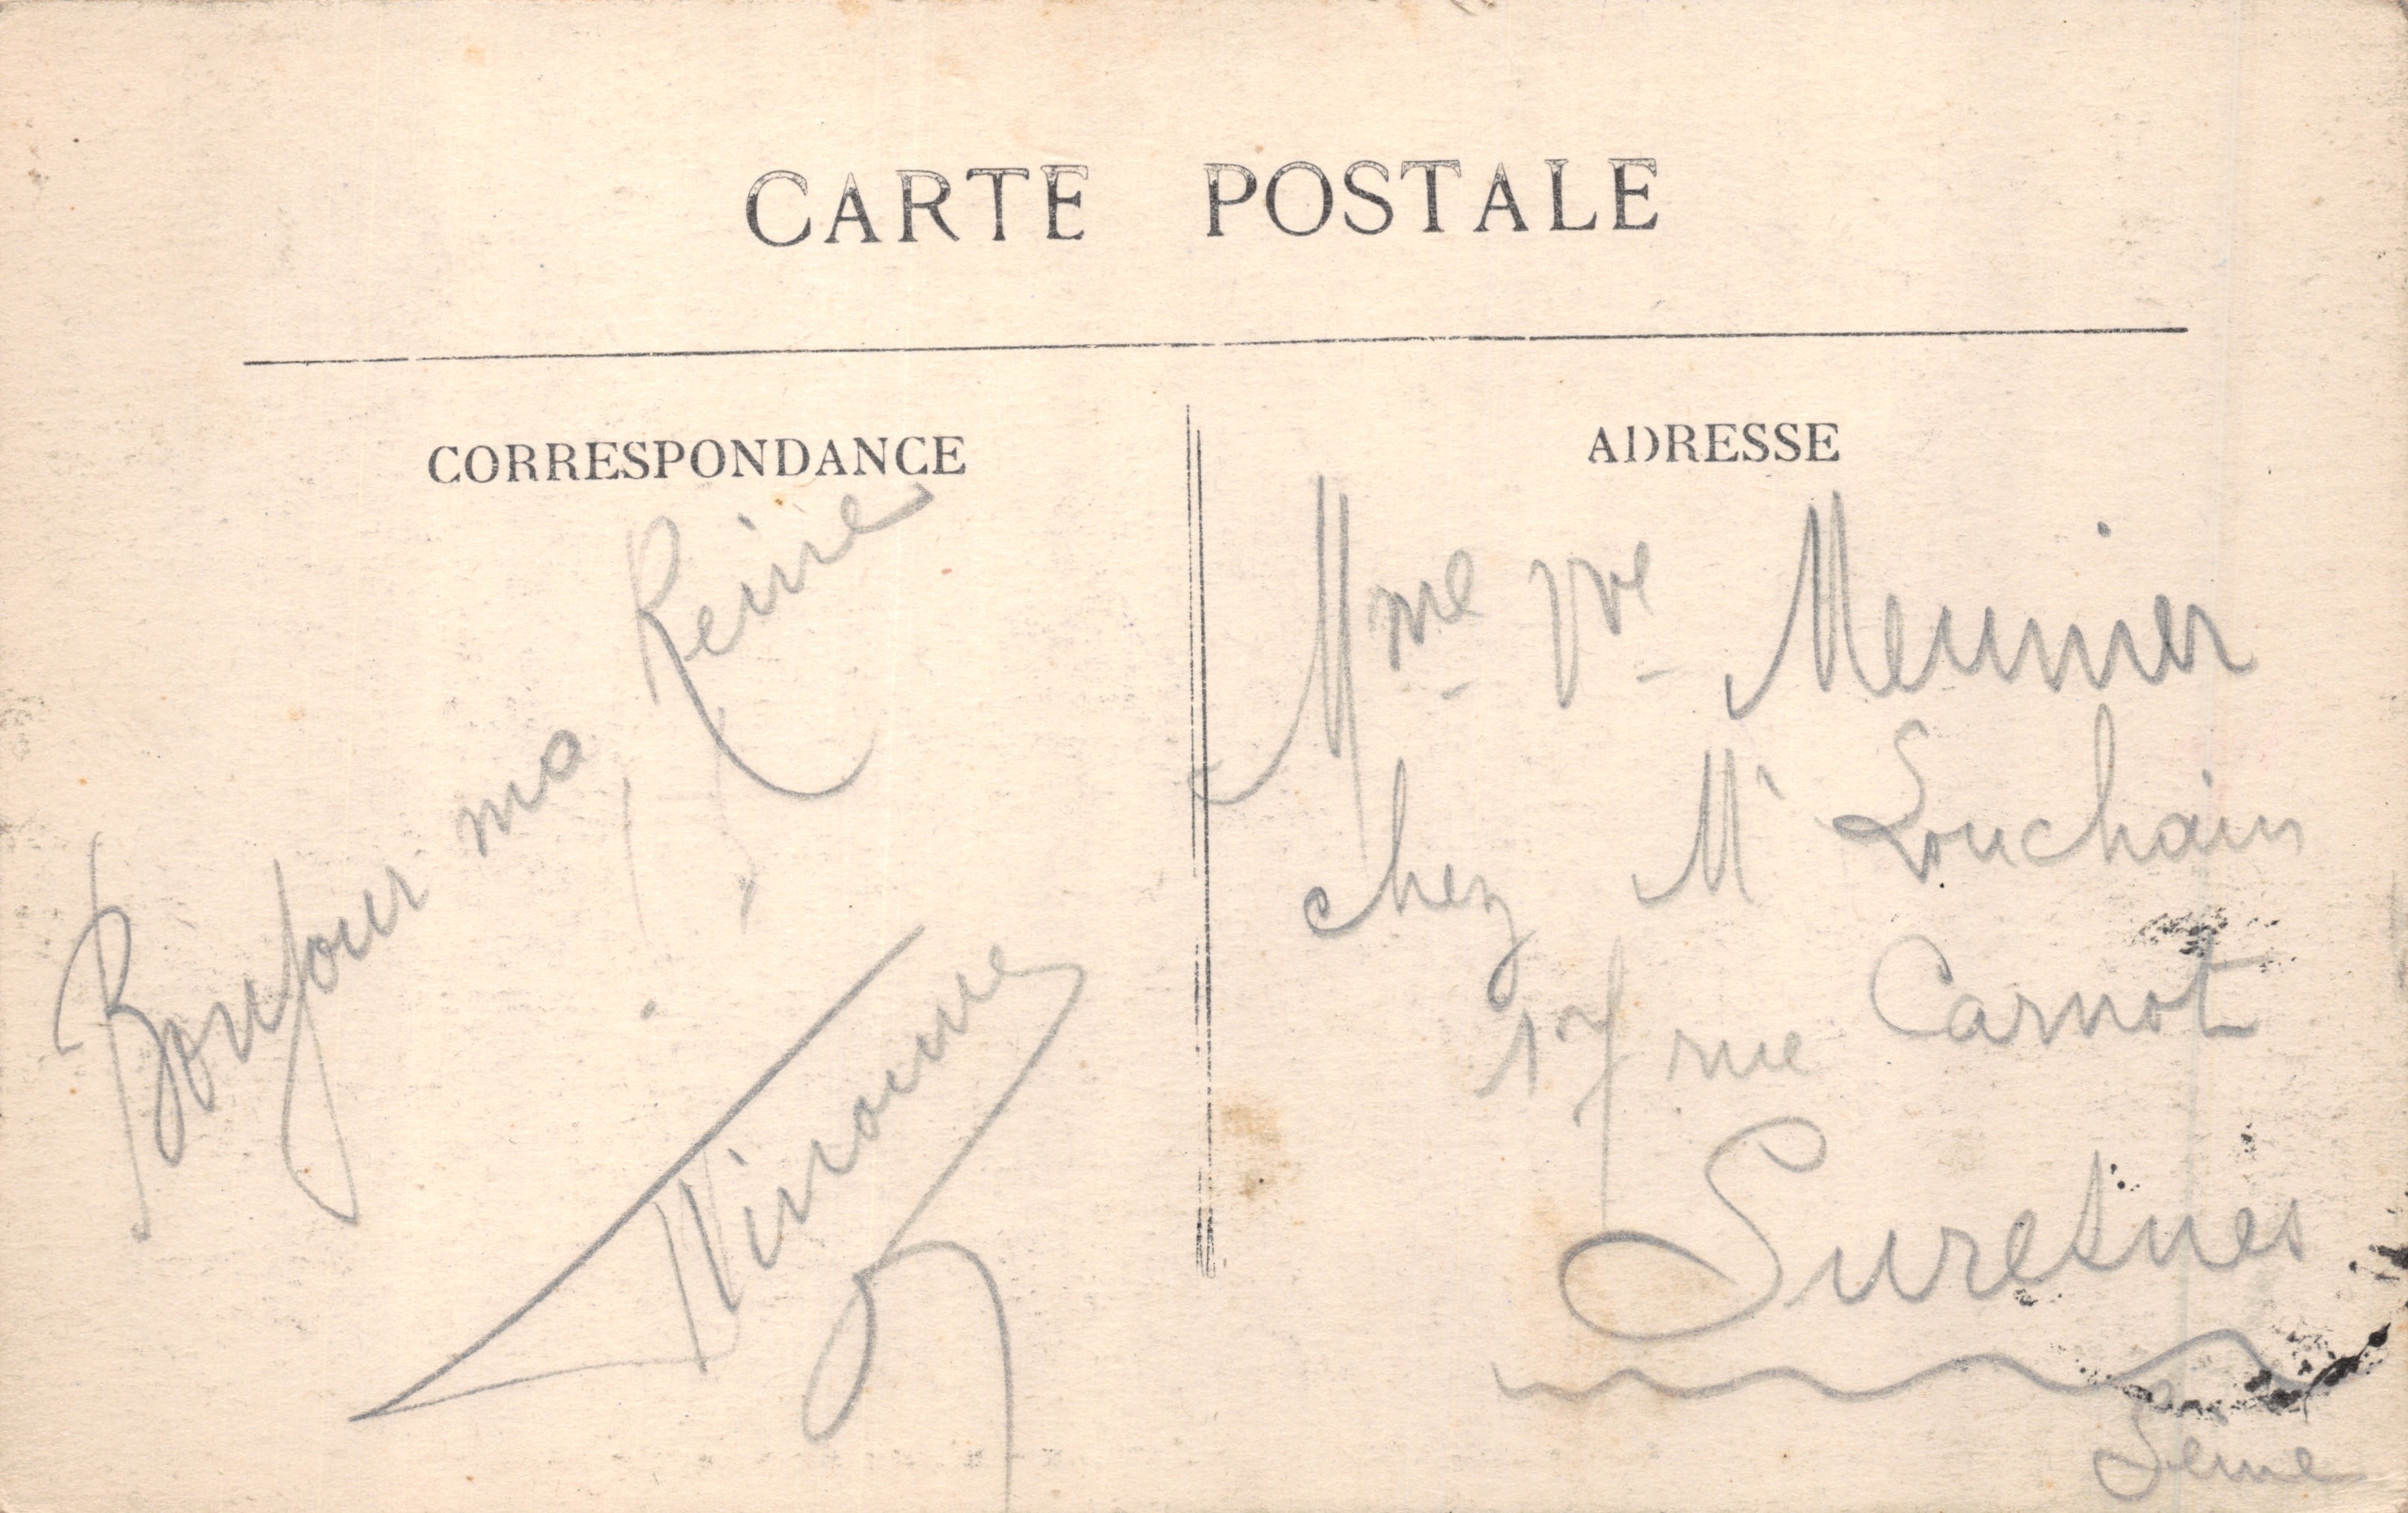 CARTE POSTALE
CORRESPONDANCE
Bonjour ma Reine !!
Ninoune
ADRESSE
Mme Vve Meunier
chez Mr Louchain
17 rue Carnot
Suresnes
Seine